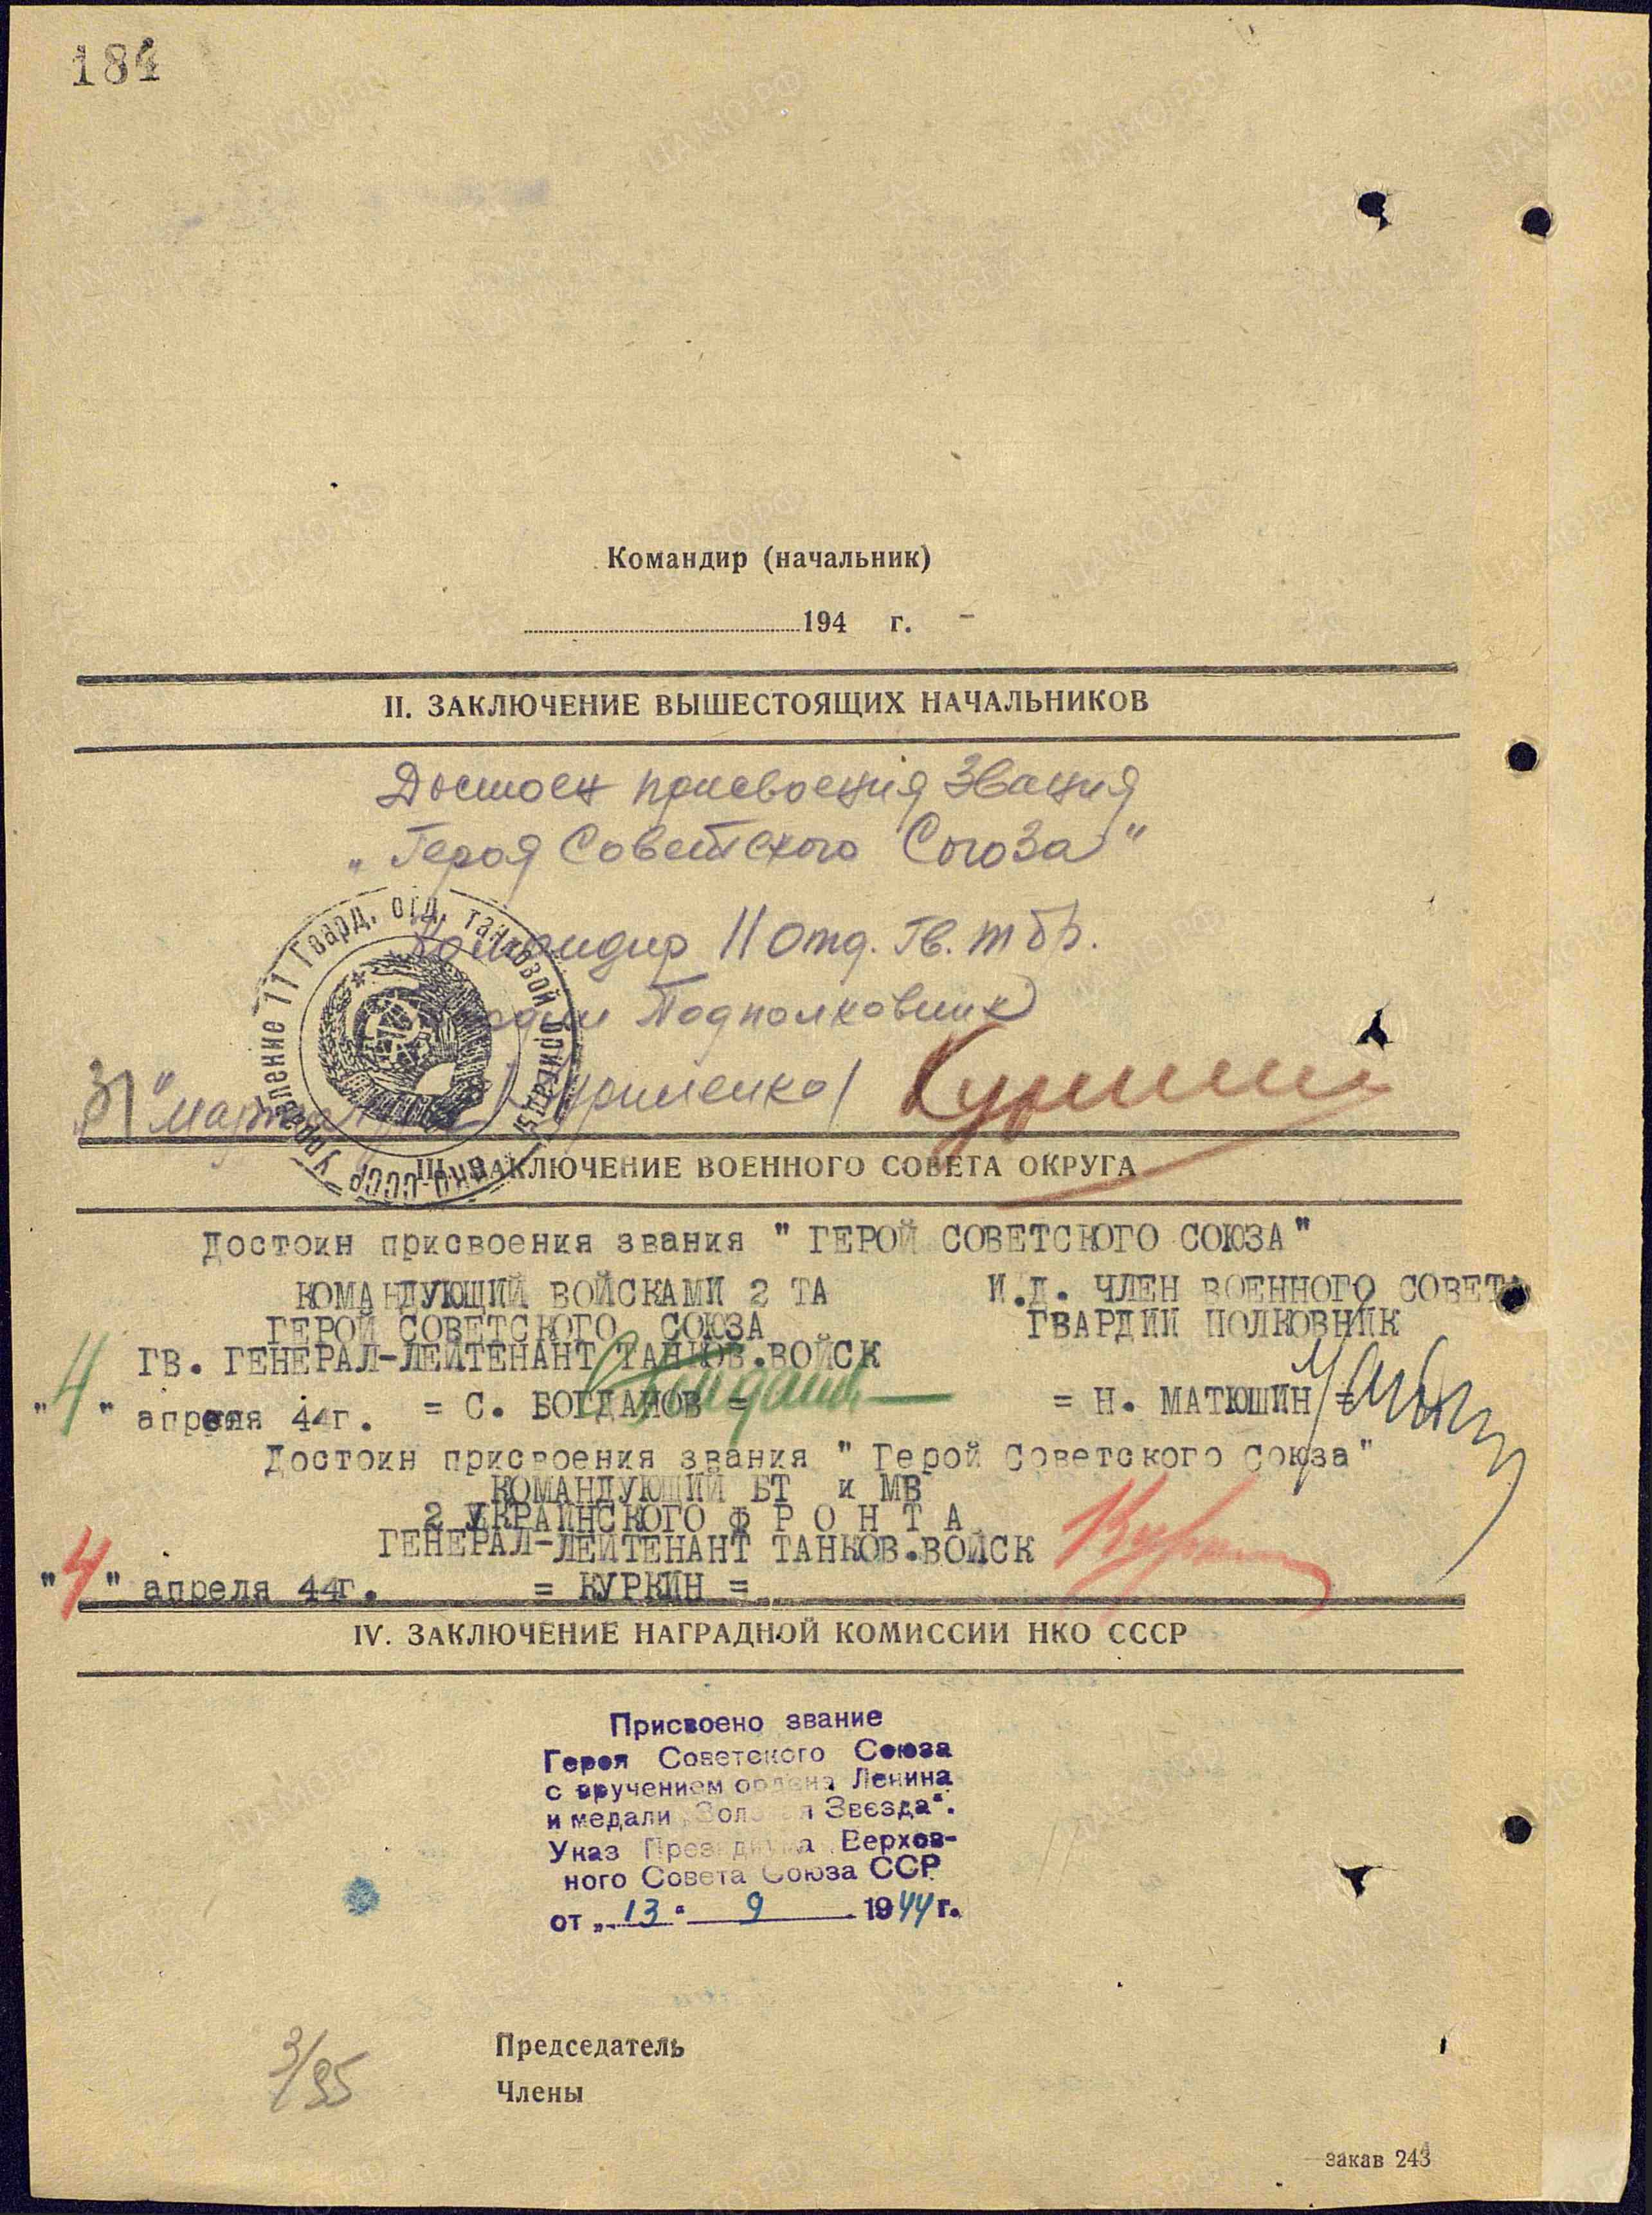 184
Командир (начальник)
194 г.
II. ЗАКЛЮЧЕНИЕ ВЫШЕСТОЯЩИХ НАЧАЛЬНИКОВ
Достоен присвоения звания
„Героя Советского Союза"
Командир 11 отд. Гв. тбр.
Подполковник
31" марта
управление 11 гвард. отд. танковой бригады НКО-СССР
III. ЗАКЛЮЧЕНИЕ ВОЕННОГО СОВЕТА ОКРУГА
Достоин присвоения звания " ГЕРОЙ СОВЕТСКОГО СОЮЗА"
КОМАНДУЮЩИЙ ВОЙСКАМИ 2 ТА
И.Д. ЧЛЕН ВОЕННОГО СОВЕТА
ГЕРОЙ СОВЕТСКОГО СОЮЗА
ГВАРДИИ ПОЛКОВНИК
ГВ. ГЕНЕРАЛ-ЛЕЙТЕНАНТ ТАНКОВ.ВОЙСК
"4" апреля 44г. = С. БОГДАНОВ =
= Н. МАТЮШИН =
Достоин присвоения звания " Герой Советского Союза"
КОМАНДУЮЩИЙ БТ и МВ
2 УКРАИНСКОГО Ф Р О Н Т А
ГЕНЕРАЛ-ЛЕЙТЕНАНТ ТАНКОВ.ВОЙСК
"4" апреля 44г. = КУРКИН =
IV. ЗАКЛЮЧЕНИЕ НАГРАДНОЙ КОМИССИИ НКО СССР
Присвоено звание
Героя Советского Союза
с вручением ордена Ленина
и медали „Золотая Звезда".
Указ Президиума Верхов-
ного Совета Союза ССР
от „13" 9 1944 г.
3/95
Председатель
Члены
закав 243